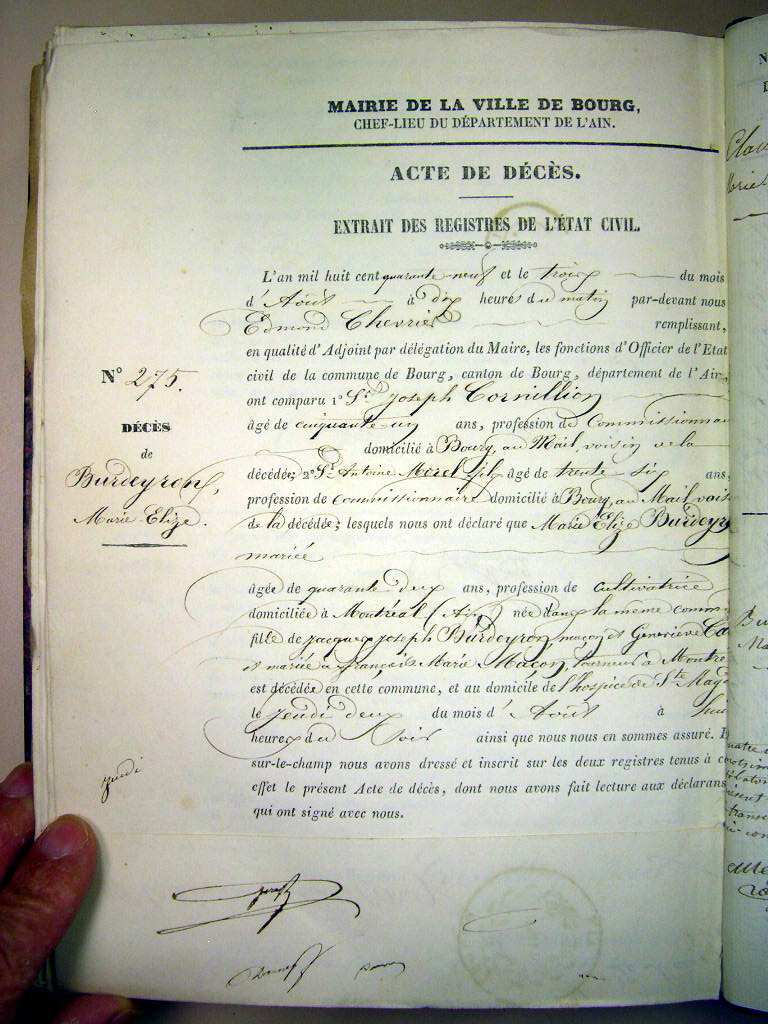 MAIRIE DE LA VILLE DE BOURG,
CHEF-LIEU DU DÉPARTEMENT DE L'AIN.
ACTE DE DÉCÈS.
EXTRAIT DES REGISTRES DE L'ÉTAT CIVIL.
L'an mil huit cent quarante neuf et le trois du mois
d'Août à dix heures du matin par-devant nous
Edmond Chevrier remplissant,
en qualité d'Adjoint par délégation du Maire, les fonctions d'Officier de l'Etat
civil de la commune de Bourg, canton de Bourg, département de l'Ain,
ont comparu 1° Sr. Joseph Cornillion
âgé de cinquante-un ans, profession de Commissionnai
domicilié à Bourg, au Mail, voisin de la
décédée; 2° Sr. Antoine Morel fils âgé de trente six ans,
profession de Commissionnaire domicilié à Bourg, au Mail vois
de la décédée; lesquels nous ont déclaré que Marie Elize Burdeyr
mariée
âgée de quarante deux ans, profession de cultivatrice
domiciliée à Montréal (Ain) née dans la même commu
fille de Jacques Joseph Burdeyron, maçon et Geneviève
et mariée à François Marie Maçon, tourneur à Montré
est décédée en cette commune, et au domicile de l'hospice de Ste. Mag
le jeudi deux du mois d'Août à hui
heures du soir ainsi que nous nous en sommes assuré.
sur-le-champ nous avons dressé et inscrit sur les deux registres tenus à c
effet le présent Acte de décès, dont nous avons fait lecture aux déclarans
qui ont signé avec nous.
N° 275.
DÉCÈS
de
Burdeyron,
Marie Elize.
jeudi